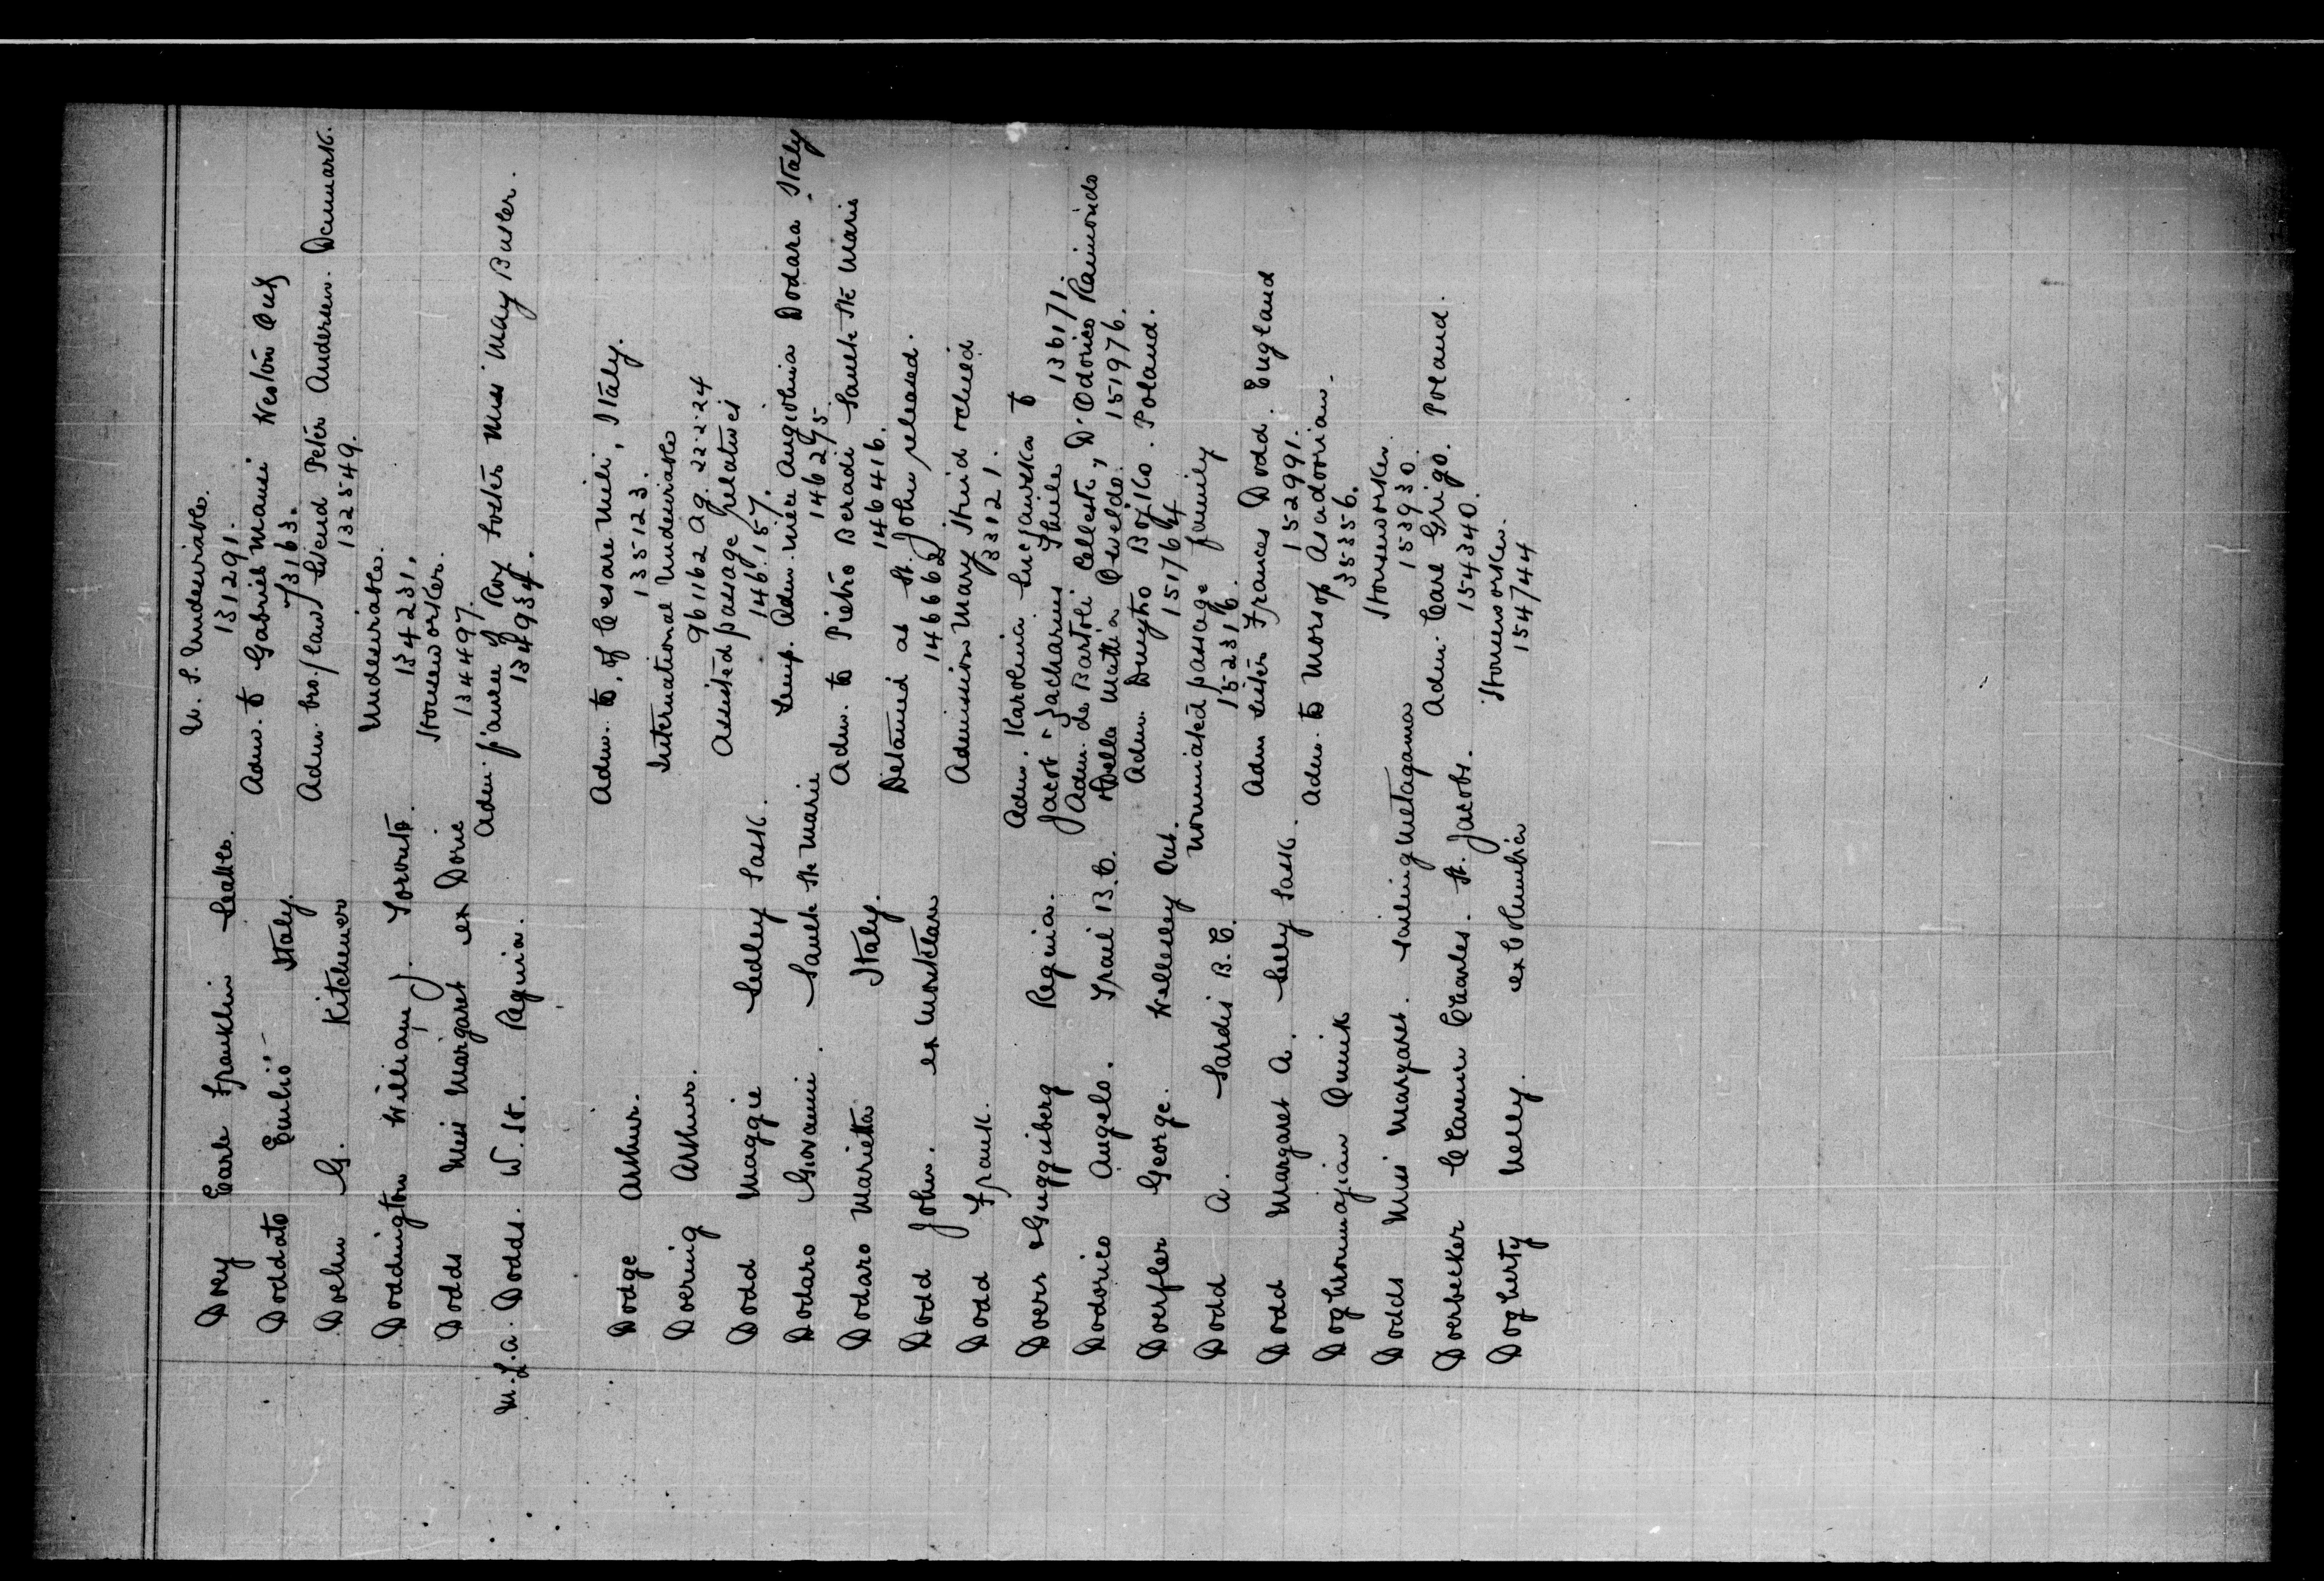 Doey Earle Franklin Seattle. U. S. Undesirable.
131291.
Doddato Emlio Italy. Adm. to Gabriel Manie Weston Ont
73163.
Doehn G. Kitchener Adm. bro/law Svend Peter Andersen. Denmark.
132549.
Doddington William J. Toronto. Undesirable.
134231.
Dodds Miss Margaret ex Doric Houseworker.
134497.
M.L.A. Dodds. W. H. Regina. Adm. fiancee of Roy Foster Miss May Busler.
134934.
Dodge Arthur. Adm. to, of Cesare Mili, Italy.
135123.
Doering Arthur. International Undesirable
961162 Ag. 22.2.24
Dodd Maggie Sedley Sask. Assisted passage relatives
146157.
Dodaro Giovanni. Sault Ste Marie Temp. Adm. niece Angiolina Dodara Italy
146275.
Dodaro Marietta Italy. Adm. to Pietro Beradi Sault Ste Marie
146416.
Dodd John. ex Montclare Detained at St. John released.
146662
Dodd Frank. Admission Mary Hurid relied
33121.
Doerr & Guggisberg Regina. Adm. Karolina to
Jacob " Zacharius Thiele 136171.
Dodorico Angelo. Trail B.C. Adm. de Bartoli Celleste, D'Odorico Raimondo
Della Mattia Osveldo. 151976.
Doerfler George. Wellesley Ont. Adm. Dmytro Bojko. Poland.
151764
Dodd A. Sardis B.C. Nominated passage family
152316.
Dodd Margaret A. Selly Sask. Adm sister Frances Dodd. England
152991.
Doghrommajian Onnik Adm. to Morsop Asadoorian.
35356.
Dodds Miss Margaret. sailing Metagama Houseworker.
153930.
Doerbecker Clarence Charles. St. Jacobs. Adm. Carl Grigo. Poland.
154340.
Dogherty Nelly. ex Columbia Houseworker.
154744